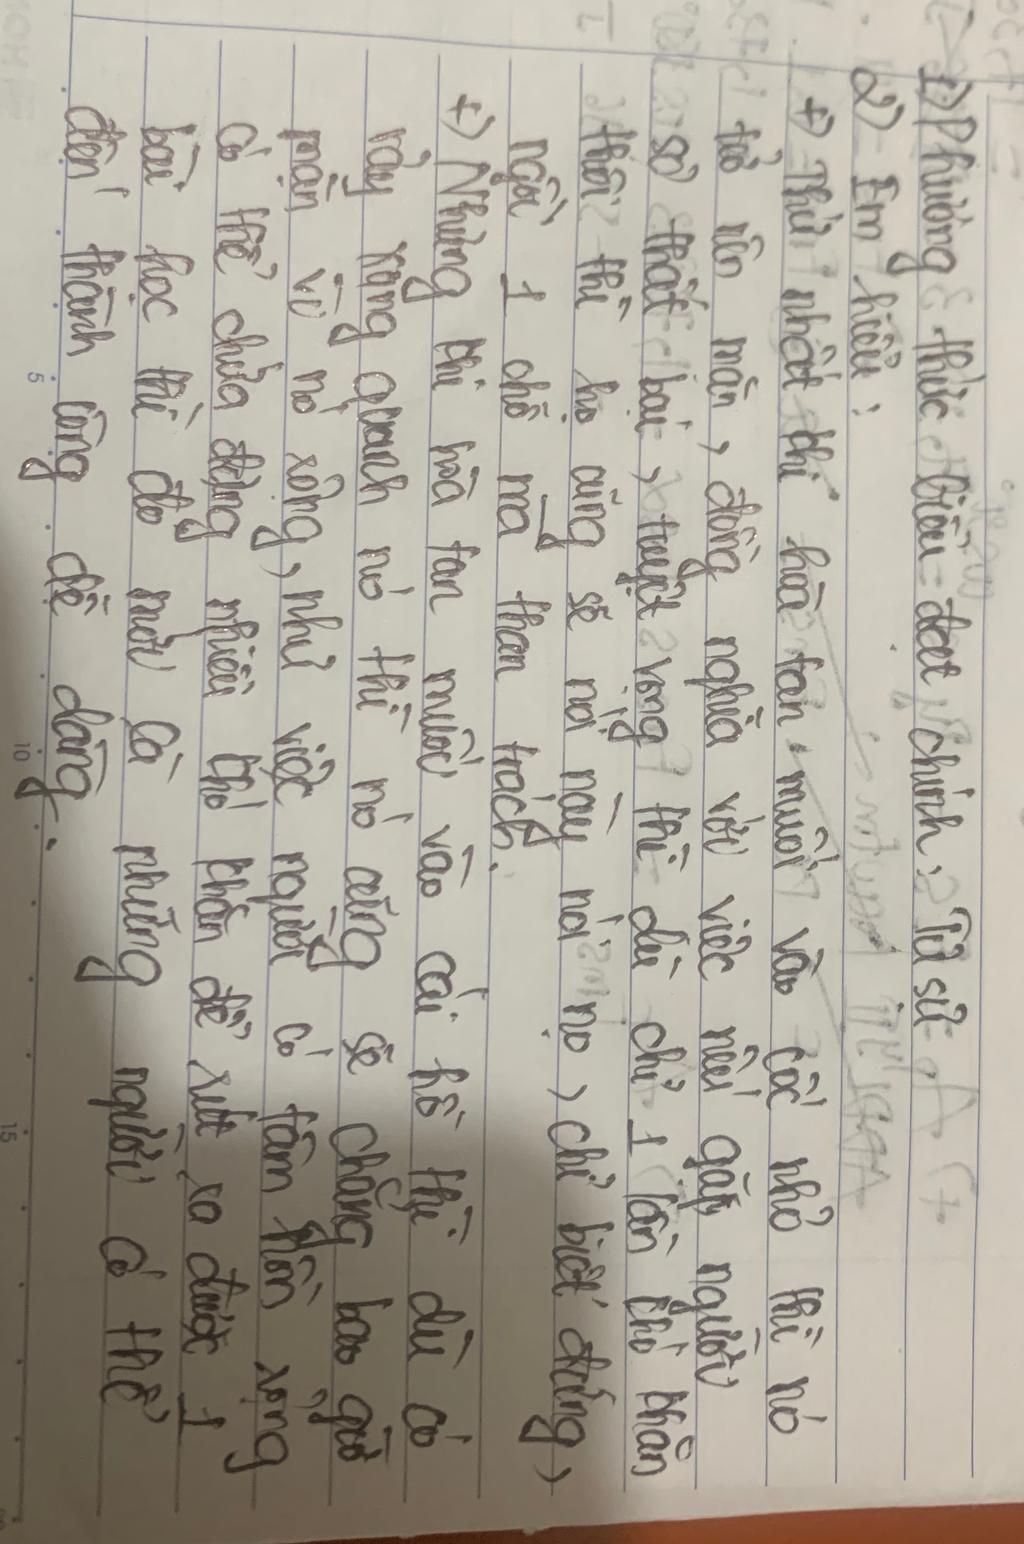 1) Phương thức biểu đạt chính: Tự sự
2) Em hiểu:
+) Thứ nhất khi hòa tan muối vào cốc nhỏ thì nó
trở lên mặn, đồng nghĩa với việc nếu gặp người
sợ thất bại, tuyệt vọng thì dù chỉ 1 lần khó khăn
thôi thì họ cũng sẽ nói này nói nọ, chỉ biết đứng,
ngồi 1 chỗ mà than trách.
+) Nhưng khi hòa tan muối vào cái hồ thì dù có
vẩy xong quanh nó thì nó cũng sẽ chẳng bao giờ
mặn vì nó rộng, như việc người có tâm hồn rộng
có thể chứa đựng nhiều khó khăn để rút ra được 1
bài học thì đó mới là những người có thể
đến thành công dễ dàng.
5 10 15